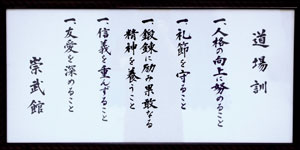 道場訓
一、人格の向上に努めること
一、礼節を守ること
一、鍛錬に励み果敢なる
精神を養うこと
一、信義を重んずること
一、友愛を深めること
崇武館